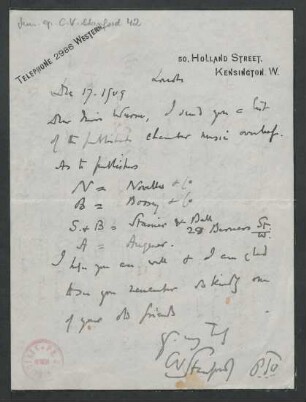 C. V. Stanford 42
TELEPHONE 2986 WESTERN.
50, HOLLAND STREET,
KENSINGTON. W.
London
Dec 17. 1909
Dear Miss I send you a list
of the published chamber music overleaf.
As to publishers
N = Novello & Co
B = Boosey & Co
S. & B = Stainer & Bell
28 Berners St.
W.
A = Augener.
I hope you are well & I am glad
to see you remember so kindly one
of your old friends
CV Stanford P.T.O